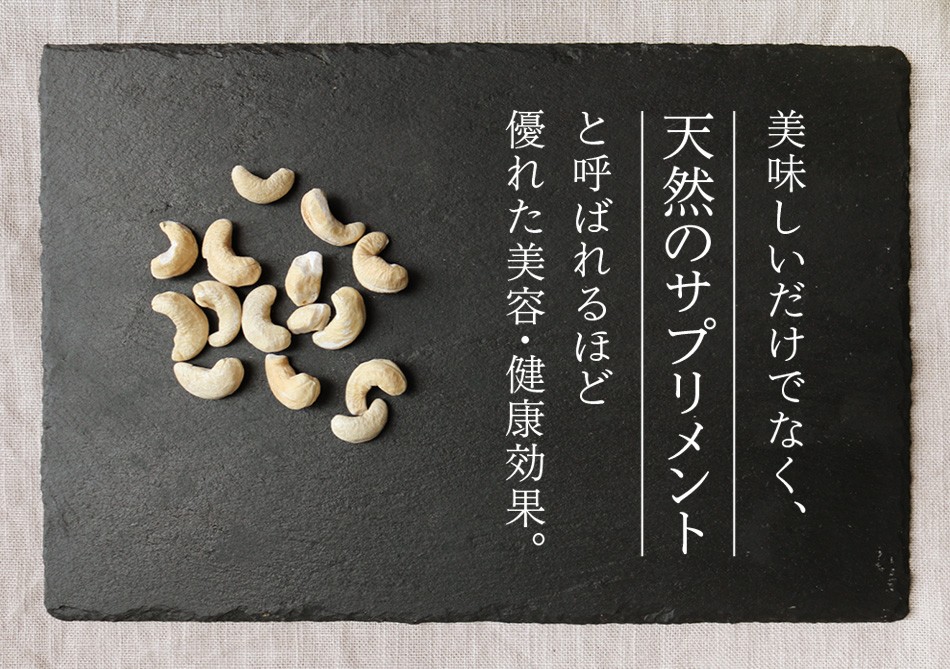 美味しいだけでなく、
天然のサプリメント
と呼ばれるほど
優れた美容・健康効果。